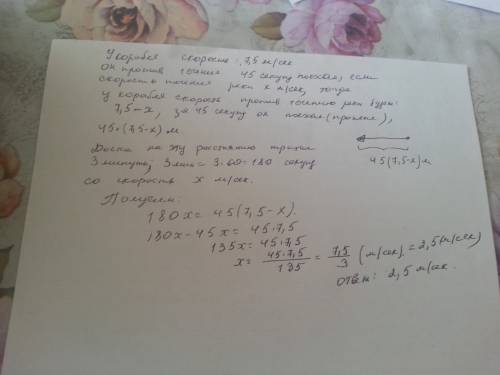 У корабля скорость: 7,5 м/сек
он против течения 45 секунд поехал, если
скорость течения реки x м/сек, тогда
у корабля скорость против течению реки будет:
7,5-x, за 45 секунд он поехал (проплыл),
45·(7,5-x) м.
Доска на эту расстоянию
45(7,5-x) м
3 минуты, 3 мин = 3·60 = 180 секунд
со скорость x м/сек.
Получим:
180x = 45(7,5-x).
180x-45x = 45·7,5
135x = 45·7,5
x = 45·7,5/135 = 7,5/3 (м/сек) = 2,5(м/сек)
ответ: 2,5 м/сек.